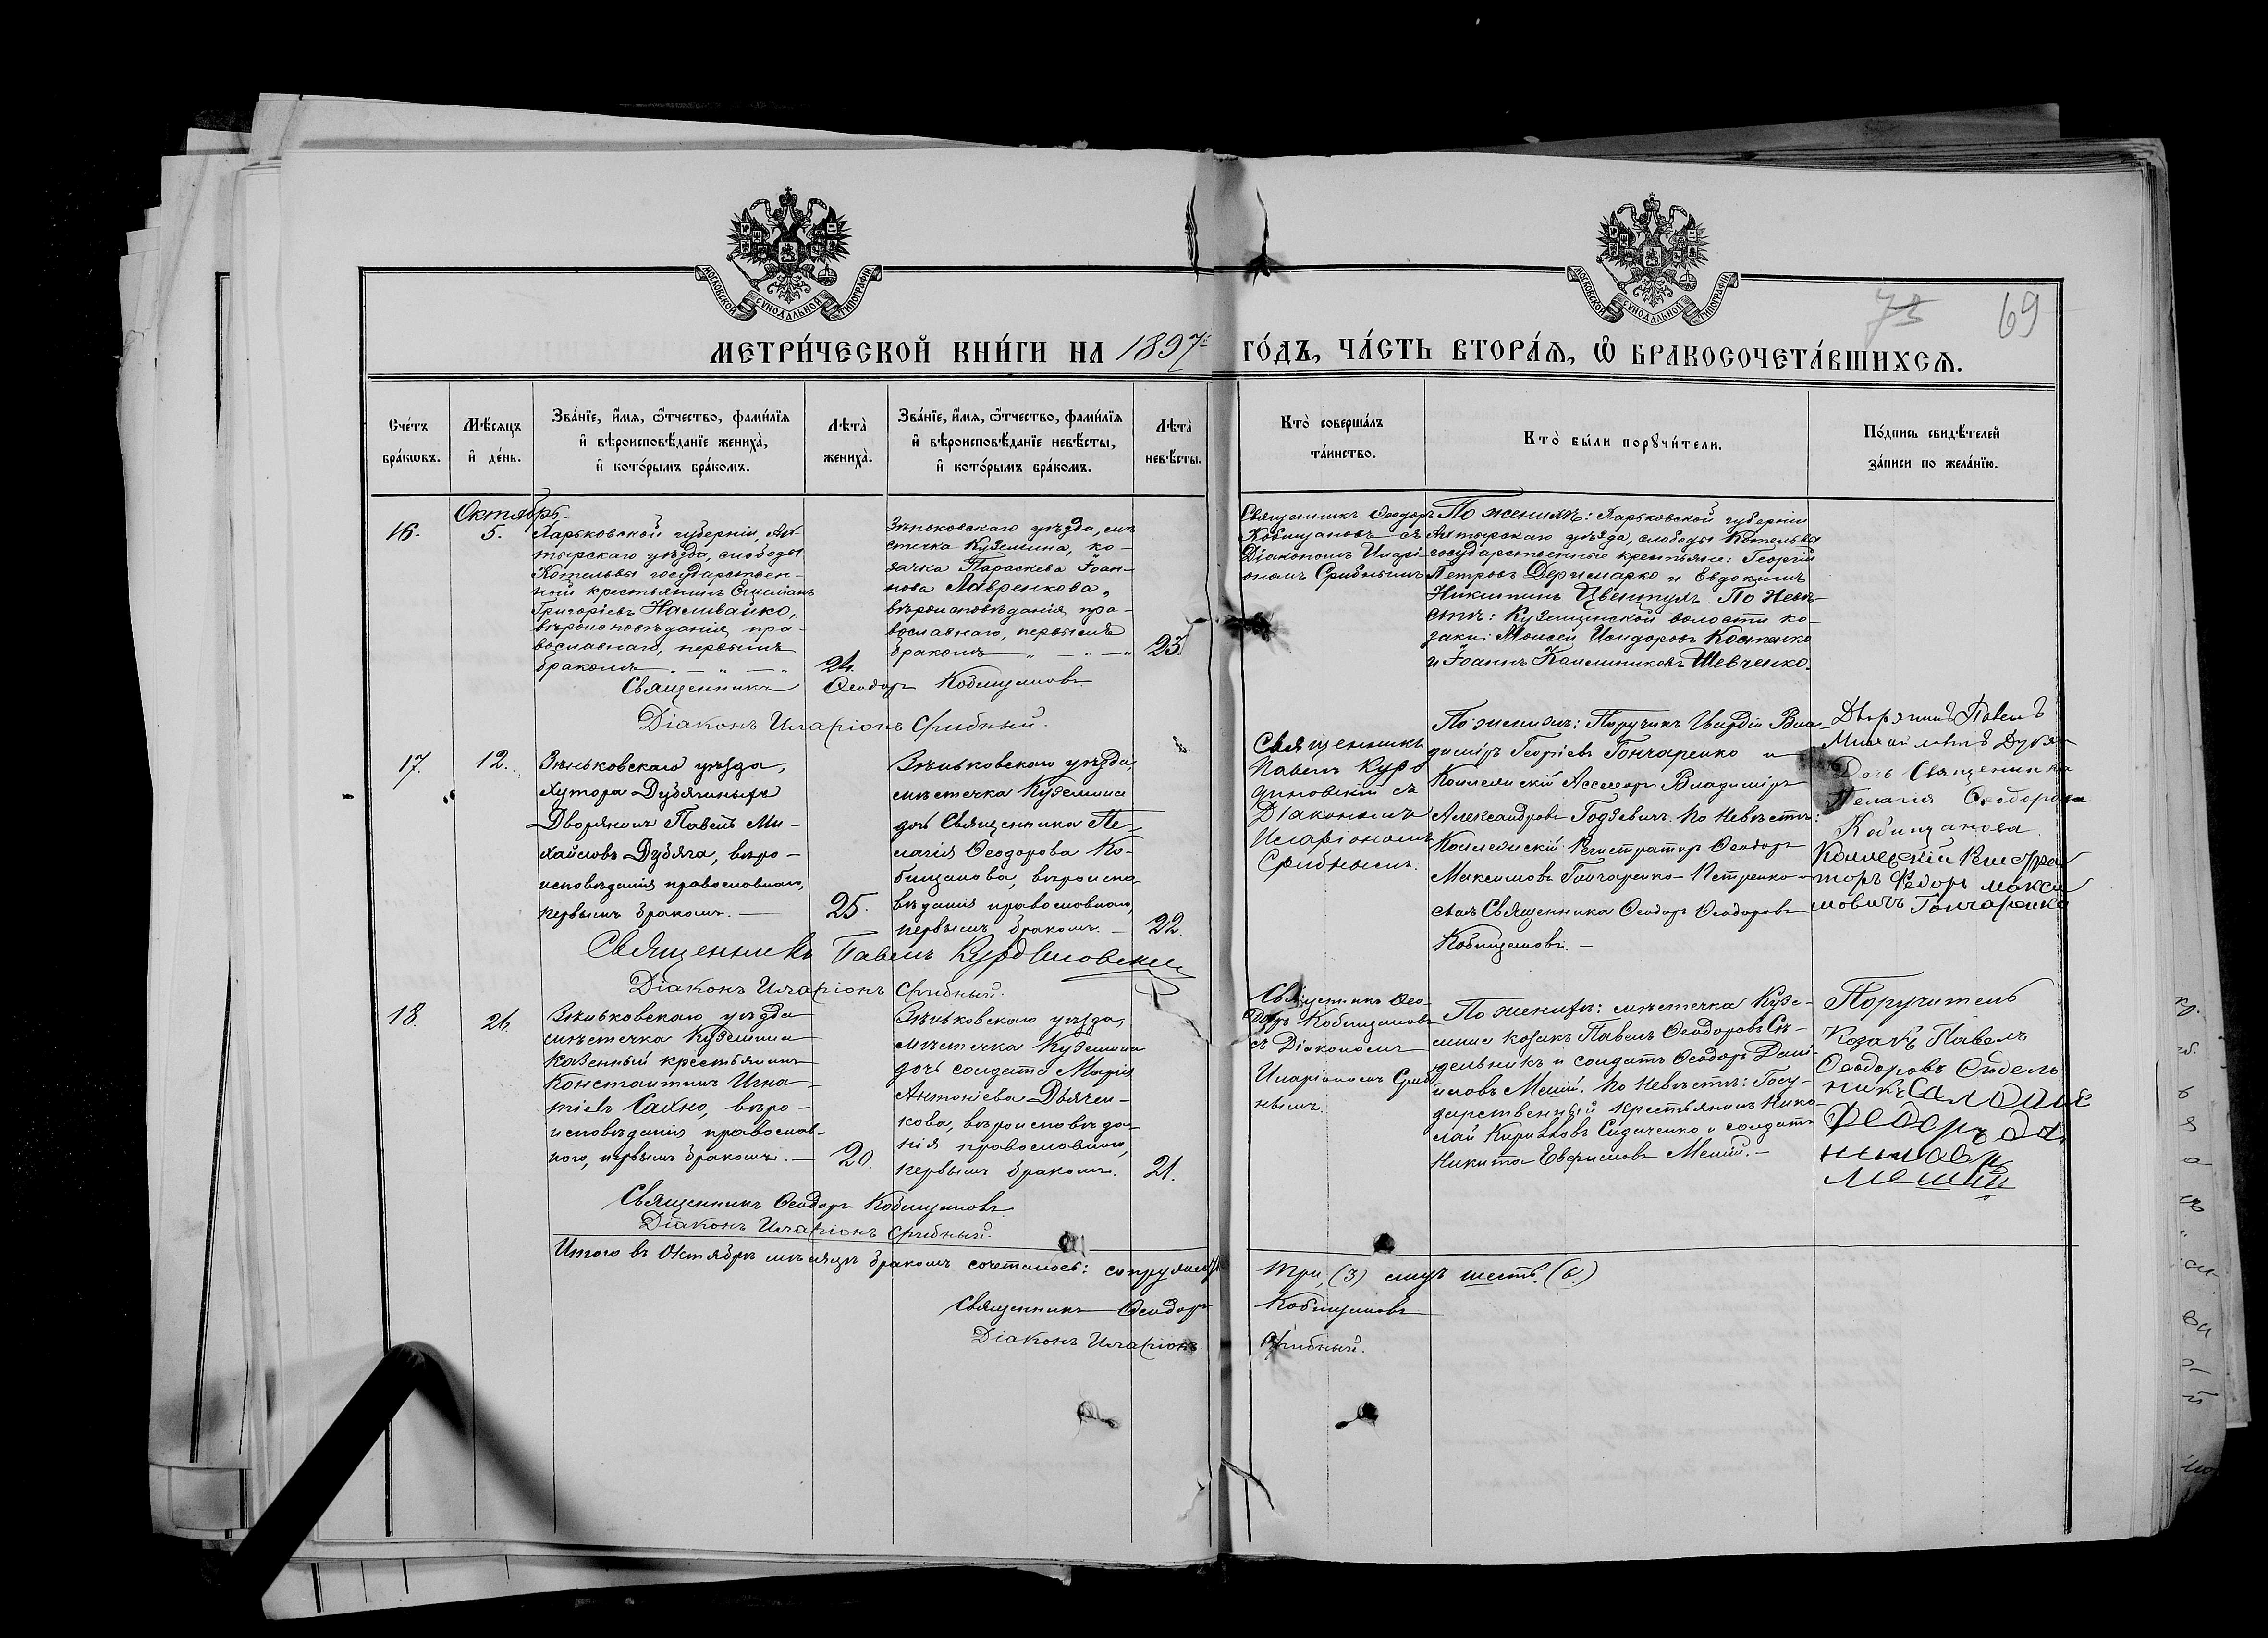 МОСКОВСКОЙ СѴНОДАЛЬНОЙ ТИПОГРАФІИ
МОСКОВСКОЙ СѴНОДАЛЬНОЙ ТИПОГРАФІИ
73 69
МЕТРИ́ЧЕСКОЙ КНИ́ГИ НА 1897й ГО́ДЪ, ЧА́СТЬ ВТОРА́Ѧ, Ѡ҆ БРАКОСОЧЕТА́ВШИХСѦ.
Сче́тъ
бра́кωвъ.
Мѣ́сяцъ
и҆ де́нь.
Зва́нїе, и҆́мя, ѻ҆́тчество, фами́лїя
и҆ вѣроисповѣ́данїе жениха̀,
и҆ кото́рымъ бра́комъ.
Лѣта̀
жениха̀.
Зва́нїе, и҆́мя, ѻ҆́тчество, фами́лїя
и҆ вѣроисповѣ́данїе невѣ́сты,
и҆ кото́рымъ бра́комъ.
Лѣта̀
невѣ́сты.
Кто̀ соверша́лъ
та́инство.
Кто̀ бы́ли порꙋчи́тели.
По́дпись свидѣ́телей
за́писи по жела́нїю.
Октябрь.
16.
5.
Харьковской губерніи, Ах-
тырскаго уѣзда, слободы
Котельвы государствен-
ный крестьянинъ
Григоріевъ Наливайко,
вѣроисповѣданія пра-
вославнаго, первымъ
бракомъ
24.
Зѣньковскаго уѣзда, мѣ
стечка Куземина, ко-
зачка Параскева Іоан-
нова Лавренкова,
вѣроисповѣданія пра-
вославнаго, первымъ
бракомъ
23.
Священникъ Ѳеодоръ
Кобищановъ съ
Діакономъ Иларі-
ономъ Срибнымъ
По женихѣ: Харьковской губерніи
Ахтырскаго уѣзда, слободы Котельвы
государственные крестьяне: Георгій
Петровъ и Евдокимъ
Никитинъ По невѣ-
стѣ: Куземинской волости ко-
заки: Моисей Исидоровъ Костенко
и Іоаннъ Калинниковъ Шевченко.
Священникъ Ѳеодоръ Кобищановъ
Діаконъ Иларіонъ Срибный.
17.
12.
Зѣньковскаго уѣзда,
хутора Дубягиныхъ
Дворянинъ Павелъ Ми-
хайловъ Дубяга, вѣро-
исповѣданія православнаго,
первымъ бракомъ. —
25.
Зѣньковскаго уѣзда,
мѣстечка Куземина
дочь Священника Пе-
лагія Ѳеодорова Ко-
бищанова, вѣроиспо-
вѣданія православнаго,
первымъ бракомъ. —
22.
Священникъ
Павелъ Курд
иновскій съ
Діакономъ
Иларіономъ
Срибнымъ.
По женихѣ: Поручикъ Гвардіи Вла-
диміръ Георгіевъ Гончаренко и
Коллежскій Ассесоръ Владиміръ
Александровъ Годзевичъ. По невѣстѣ:
Коллежскій Регистраторъ Ѳеодоръ
Максимовъ Гончаренко-Петренко и
сынъ Священника Ѳеодоръ Ѳеодоровъ
Кобищановъ. —
Дворянинъ Павелъ
Михайловичъ Дубяга
Дочь Священника
Пелагія Ѳеодорова
Кобищанова
Коллежскій Регистра
торъ Федоръ Макси
мовичъ Гончаренко
Священникъ Павелъ Курдиновскій
Діаконъ Иларіонъ Срибный.
18.
26.
Зѣньковскаго уѣзда
мѣстечка Куземина
казенный крестьянинъ
Константинъ Игна-
тіевъ Сахно, вѣро-
исповѣданія православ-
наго, первымъ бракомъ. —
20.
Зѣньковскаго уѣзда,
мѣстечка Куземина
дочь солдата Марія
Антоніева Дьячен-
кова, вѣроисповѣда-
нія православнаго,
первымъ бракомъ.
21.
Священникъ Ѳео-
доръ Кобищановъ
съ Діакономъ
Иларіономъ Сриб
нымъ.
По женихѣ: мѣстечка Кузе-
мина козакъ Павелъ Ѳеодоровъ Си-
дельникъ и солдатъ Ѳеодоръ Дані-
иловъ Мешій. По невѣстѣ: Госу-
дарственный крестьянинъ Нико-
лай Кирилловъ Сидаченко и солдатъ
Никита Евфимовъ Мешій. —
Поручитель
Козакъ Павелъ
Ѳеодоровъ Сидель
никъ Салдатъ
Федоръ Да
ниловъ
Мешій
Священникъ Ѳеодоръ Кобищановъ
Діаконъ Иларіонъ Срибный.
Итого въ Октябрѣ мѣсяцѣ бракомъ сочеталось: супружествъ три, (3) лицъ шесть. (6.)
Священникъ Ѳеодоръ Кобищановъ
Діаконъ Иларіонъ Срибный.